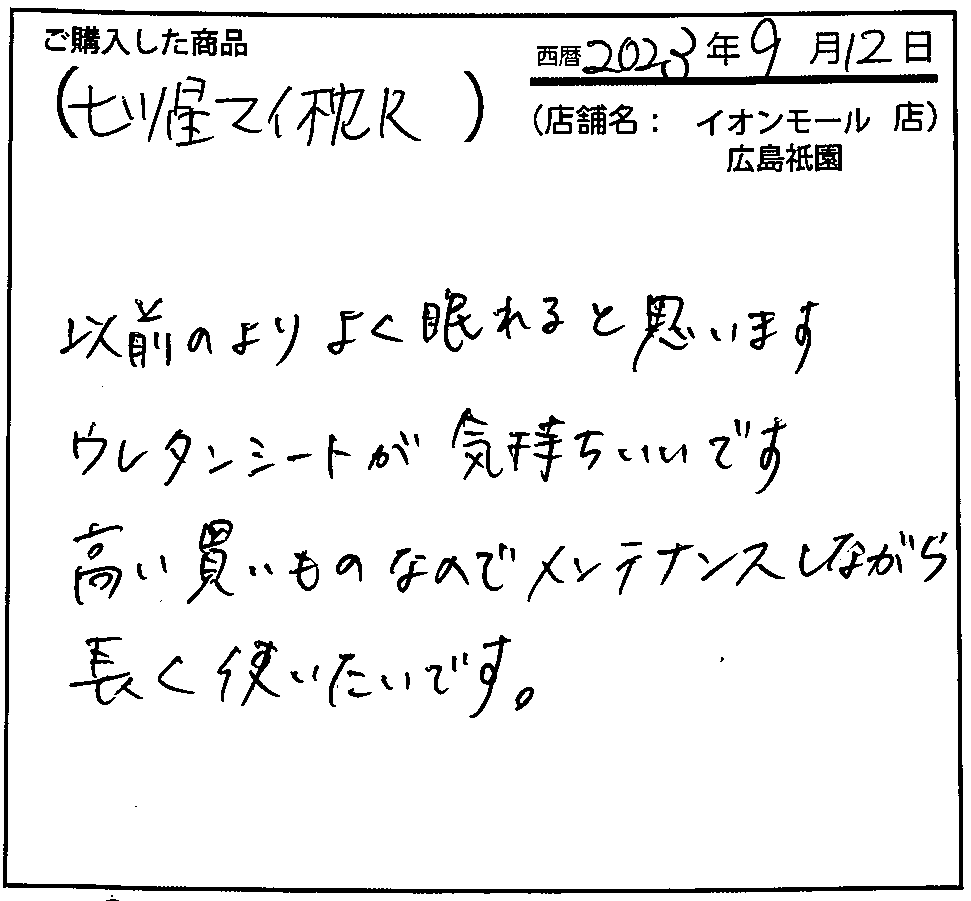 ご購入した商品
西暦2023年9月12日
(七ツ星マイ枕R)
(店舗名： イオンモール 店)
広島祇園
以前のよりよく眠れると思います
ウレタンシートが気持ちいいです
高い買いものなのでメンテナンスしながら
長く使いたいです。